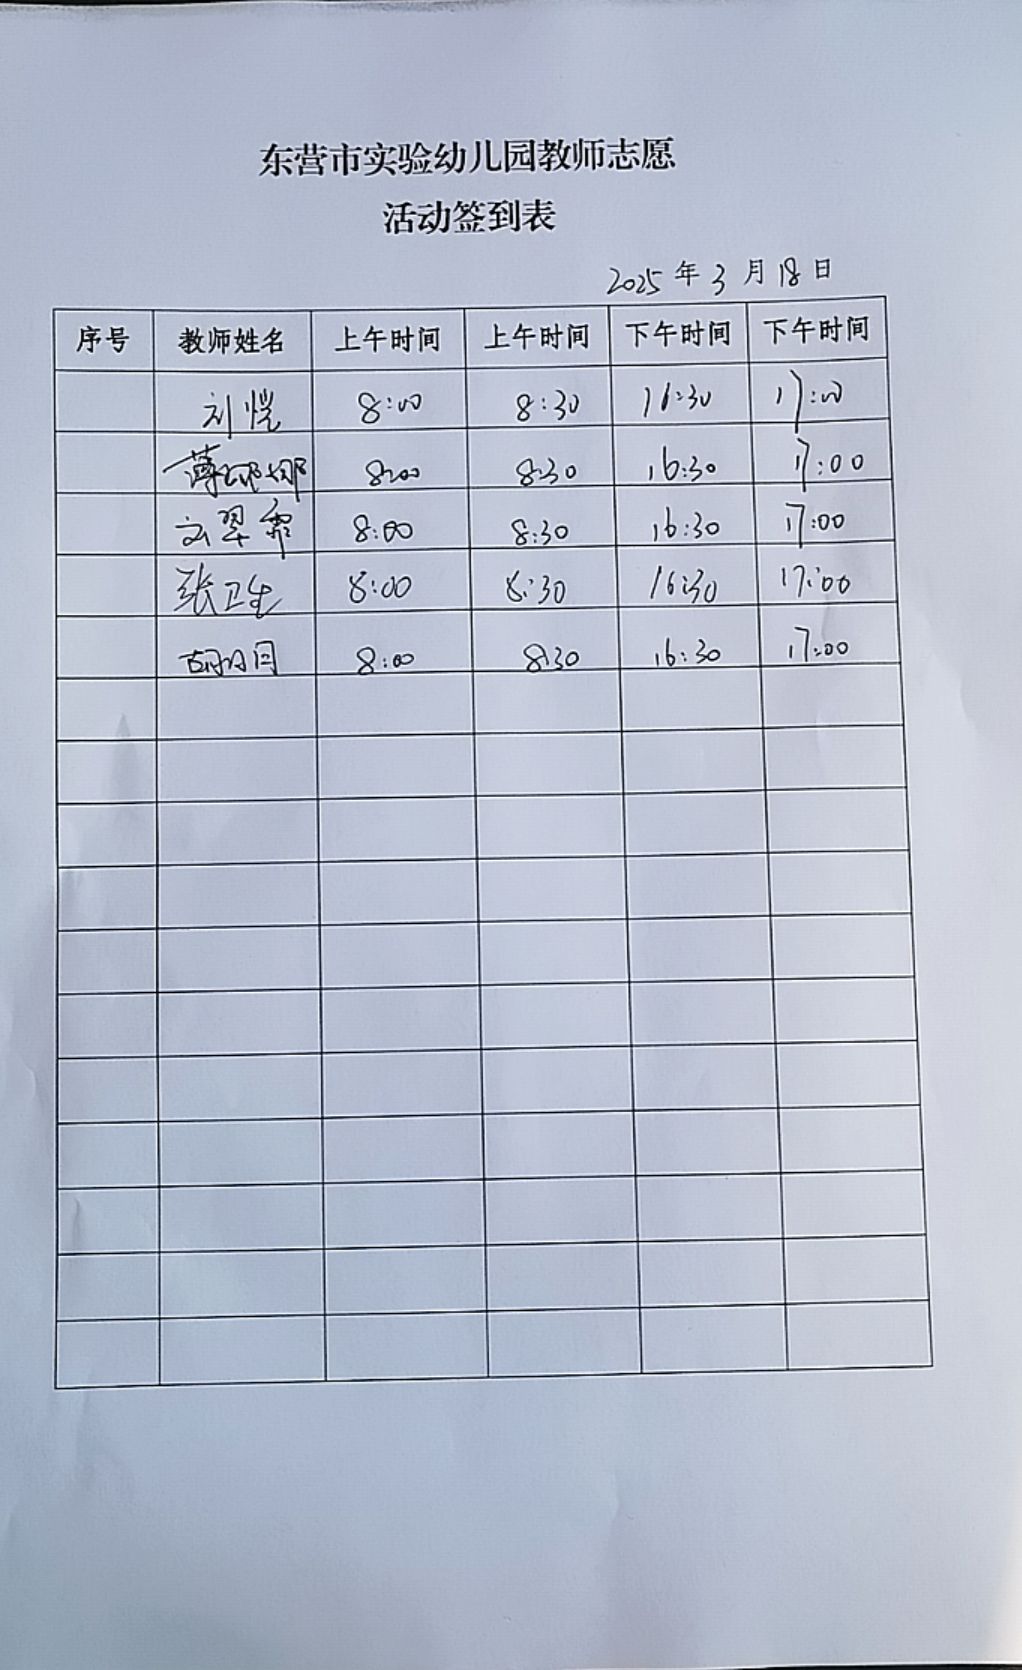 东营市实验幼儿园教师志愿
活动签到表
2025年3月18日
序号 教师姓名 上午时间 上午时间 下午时间 下午时间
刘恺 8:00 8:30 16:30 17:00
薄娜娜 8:00 8:30 16:30 17:00
刘翠霜 8:00 8:30 16:30 17:00
张卫生 8:00 8:30 16:30 17:00
8:00 8:30 16:30 17:00